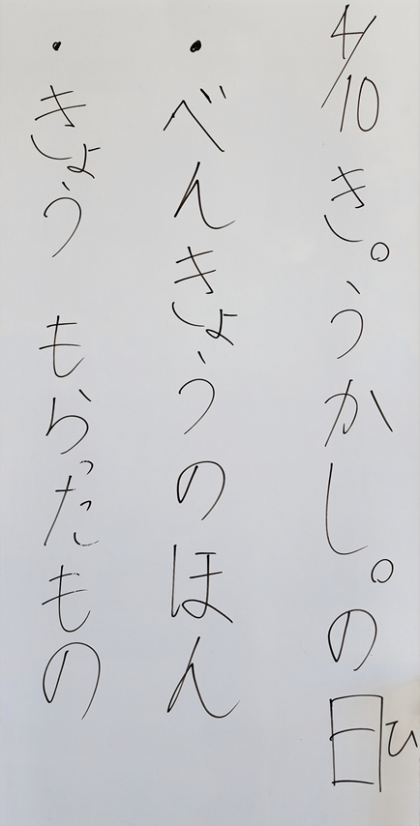 4/10 き。うかし。の日
ひ
・べんきょうのほん
・きょう もらったもの